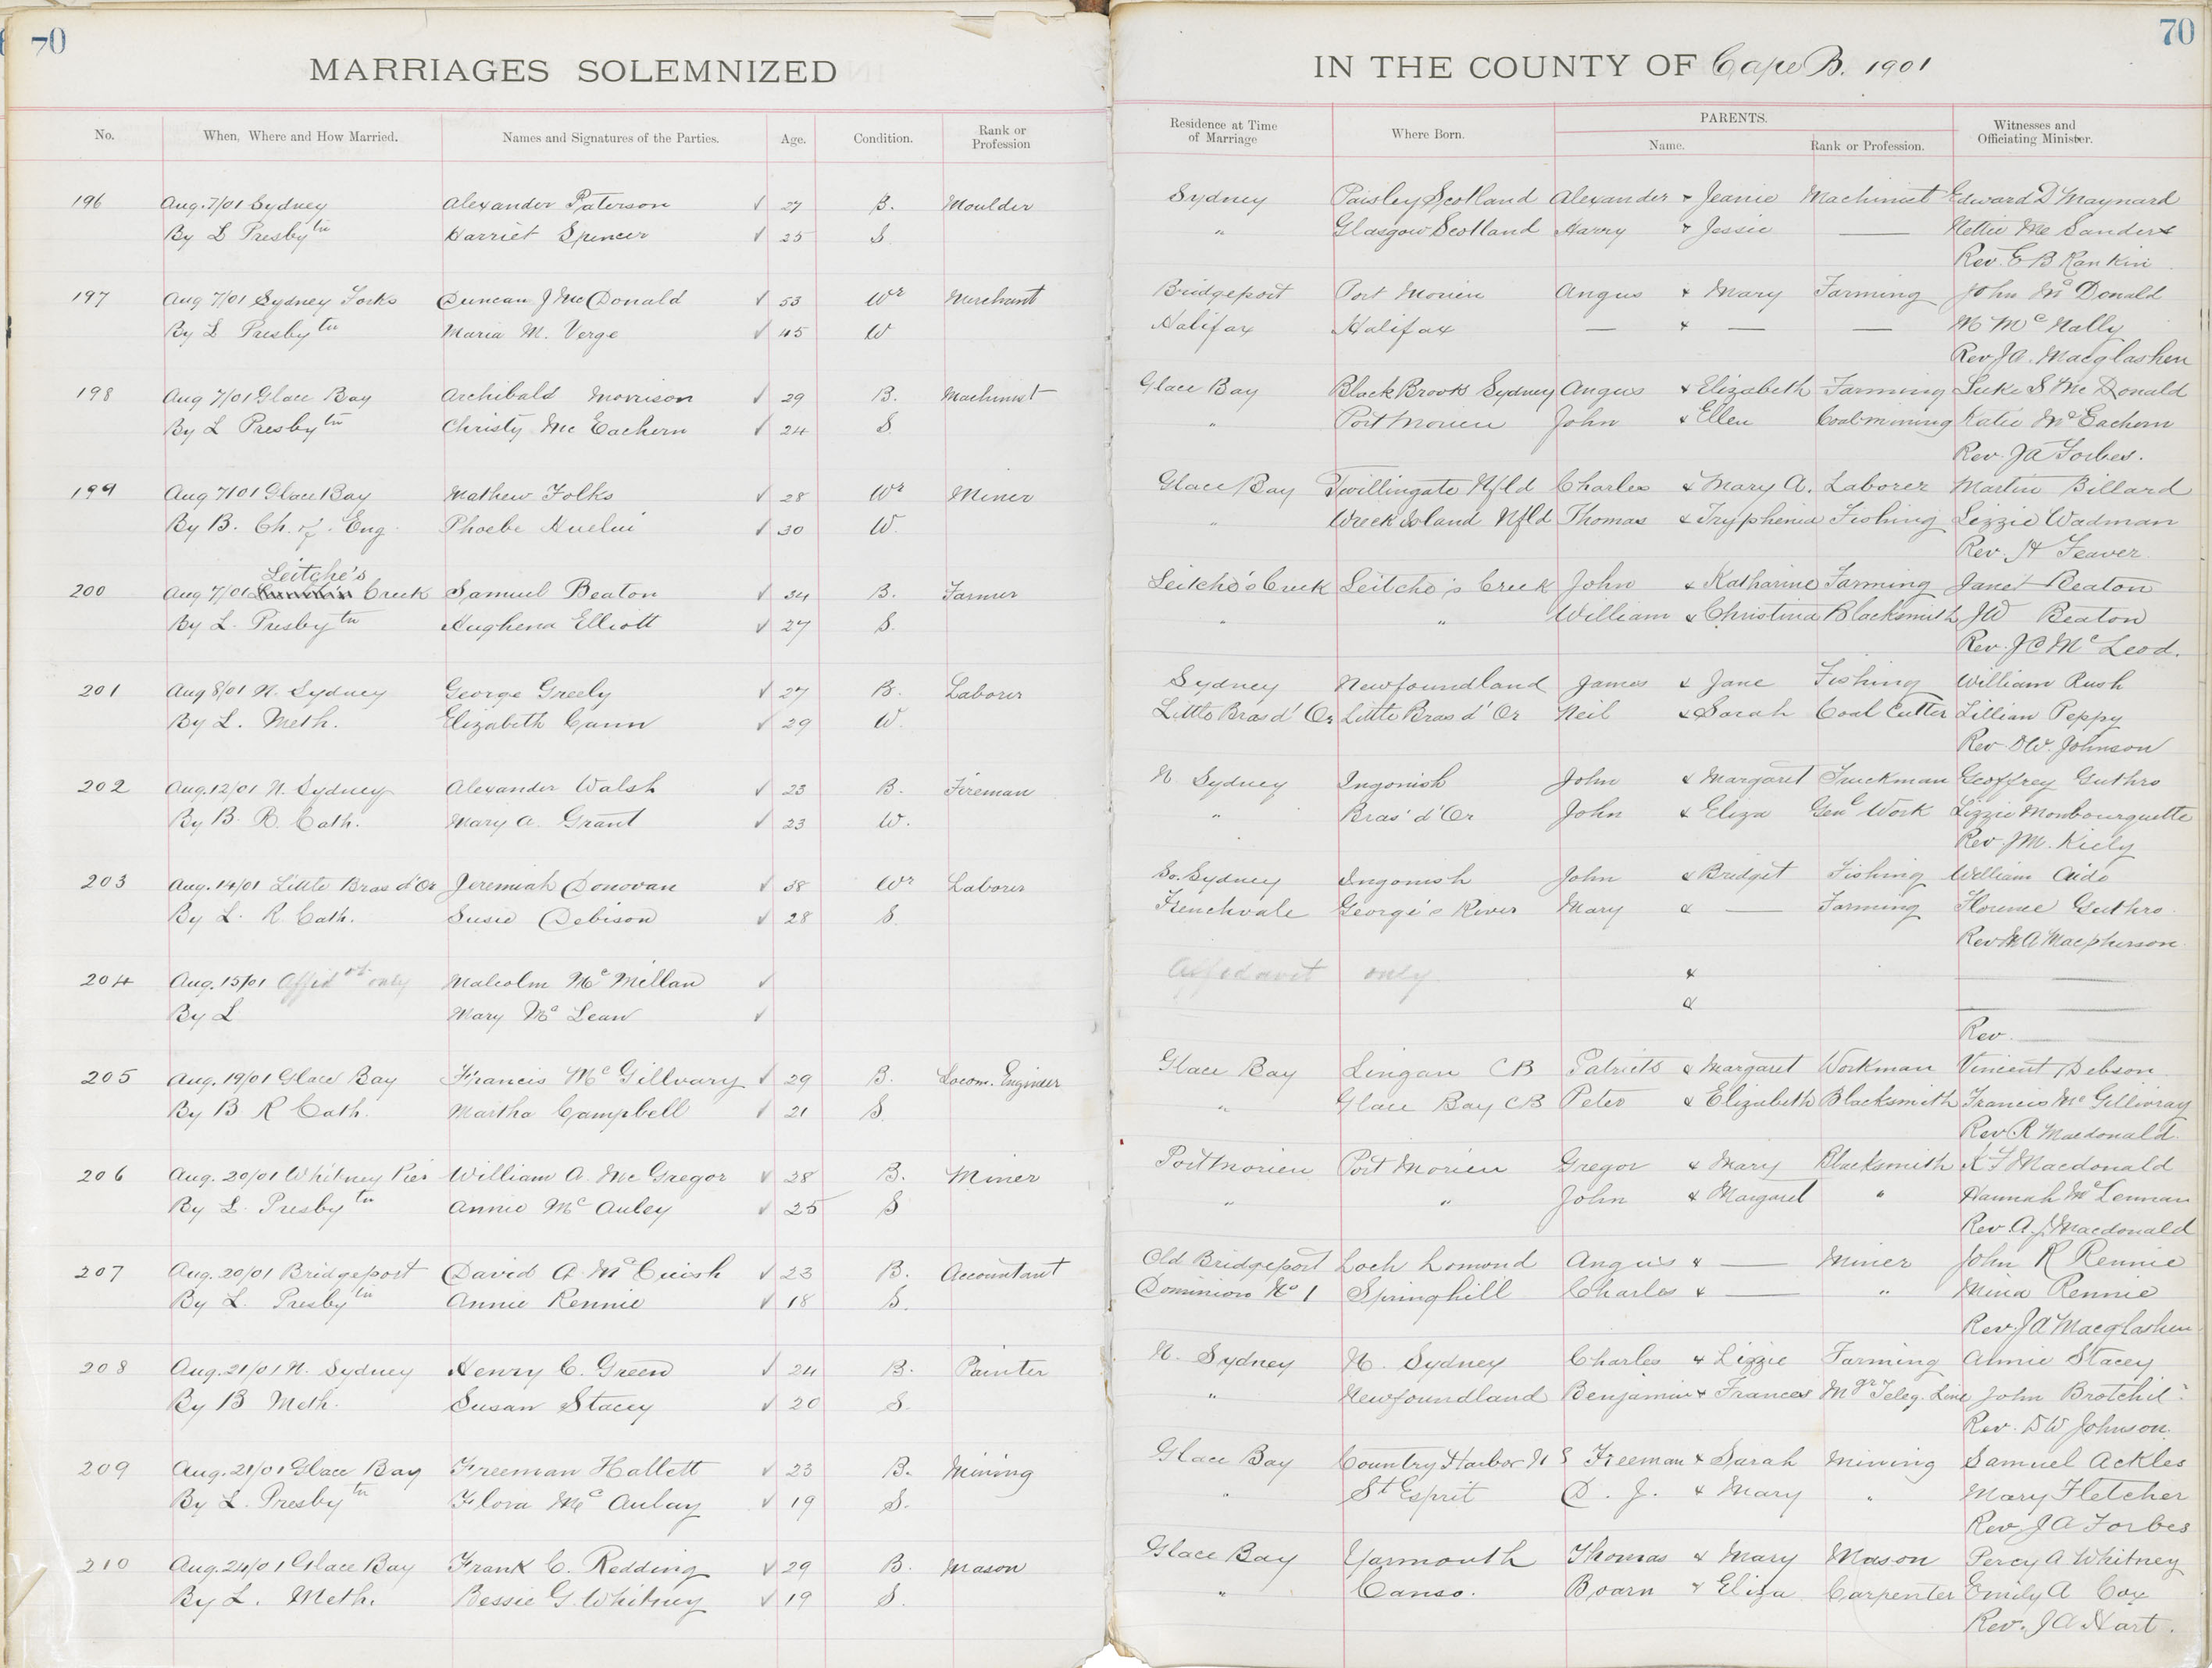 70
MARRIAGES SOLEMNIZED
No. When, Where and How Married. Names and Signatures of the Parties. Age. Condition. Rank or Profession
196 Aug. 7/01 Sydney Alexander Paterson √ 27 B. Moulder
By L Presbytn Harriet Spencer √ 25 S.
197 Aug 7/01 Sydney Forks Duncan J McDonald √ 53 Wr Merchant
By L Presbytn Maria M. Verge √ 45 W
198 Aug 7/01 Glace Bay Archibald Morrison √ 29 B. Machinist
By L Presbytn Christy McEachern √ 24 S.
199 Aug 7/01 Glace Bay Mathew Folks √ 28 Wr Miner
By B. Ch. of Eng. Phoebe Huelin √ 30 W.
Leitche's
200 Aug 7/01 Creek Samuel Beaton √ 34 B. Farmer
By L. Presbytn Hughena Elliott √ 27 S.
201 Aug 8/01 N. Sydney George Greely √ 27 B. Laborer
By L. Meth. Elizabeth Cann √ 29 W.
202 Aug. 12/01 N. Sydney Alexander Walsh √ 23 B. Fireman
By B. R. Cath. Mary A. Grant √ 23 W.
203 Aug. 14/01 Little Bras d'Or Jeremiah Donovan √ 38 Wr Laborer
By L. R. Cath. Susie Debison √ 28 S.
204 Aug. 15/01 Affidvt only Malcolm McMillan √
By L Mary McLean √
205 Aug. 19/01 Glace Bay Francis McGillvary √ 29 B. Locom. Engineer
By B R Cath. Martha Campbell √ 21 S.
206 Aug. 20/01 Whitney Pier William A. McGregor √ 28 B. Miner
By L. Presbytn Annie McAuley √ 25 S
207 Aug. 20/01 Bridgeport David A. McCuish √ 23 B. Accountant
By L. Presbytn Annie Rennie √ 18 S.
208 Aug. 21/01 N. Sydney Henry C. Green √ 24 B. Painter
By B Meth. Susan Stacey √ 20 S.
209 Aug. 21/01 Glace Bay Freeman Hallett √ 23 B. Mining
By L. Presbytn Flora McAulay √ 19 S.
210 Aug. 24/01 Glace Bay Frank C. Redding √ 29 B. Mason
By L. Meth. Bessie G. Whitney √ 19 S.
70
IN THE COUNTY OF Cape B. 1901
Residence at Time of Marriage Where Born. PARENTS. Name. Rank or Profession. Witnesses and Officiating Minister.
Sydney Paisley Scotland Alexander & Jeanie Machinist Edward D Maynard
" Glasgow Scotland Harry & Jessie — Nettie Mc Sanders
Rev. E B Rankin
Bridgeport Port Morien Angus & Mary Farming John McDonald
Halifax Halifax — & — — M McNally
Rev J A. Macglashen
Glace Bay Black Brook Sydney Angus & Elizabeth Farming Luke S McDonald
" Port Morien John & Ellen Coal-mining Katie McEachern
Rev. J A Forbes.
Glace Bay Twillingate Nfld Charles & Mary A. Laborer Martin Billard
" Wreck Island Nfld Thomas & Tryphenia Fishing Lizzie Wadman
Rev. H Feaver
Leitche's Creek Leitche's Creek John & Katharine Farming Janet Beaton
" " William & Christina Blacksmith J W Beaton
Rev. J C McLeod.
Sydney Newfoundland James & Jane Fishing William Rush
Little Bras d'Or Little Bras d'Or Neil & Sarah Coal Cutter Lillian Peppy
Rev. D W. Johnson
N. Sydney Ingonish John & Margaret Truckman Geoffrey Guthro
" Bras' d'Or John & Eliza Genl Work Lizzie Monbourquette
Rev. J M. Kiely
So. Sydney Ingonish John & Bridget Fishing William
Frenchvale George's River Mary & — Farming Florence Guthro
Rev M A Macpherson
Affidavit only & —
& —
Rev. —
Glace Bay Lingan CB Patrick & Margaret Workman Vincent Debson
" Glace Bay CB Peter & Elizabeth Blacksmith Francis McGillivray
Rev. R Macdonald.
Port Morien Port Morien Gregor & Mary Blacksmith K F Macdonald
" " John & Margaret " Hannah McLennan
Rev. A. J. Macdonald
Old Bridgeport Loch Lomond Angus & — Miner John R Rennie
Dominion No 1 Springhill Charles & — " Mina Rennie
Rev. J A Macglashen
N. Sydney N. Sydney Charles & Lizzie Farming Annie Stacey
" Newfoundland Benjamin & Frances Mgr Teleg. Line John Brotchie
Rev. D W Johnson.
Glace Bay Country Harbor N S Freeman & Sarah Mining Samuel Ackles
" St Esprit D. J. & Mary " Mary Fletcher
Rev J A Forbes
Glace Bay Yarmouth Thomas & Mary Mason Percy A Whitney
" Canso. Boarn & Eliza Carpenter Emily A Cox
Rev. J A Hart.